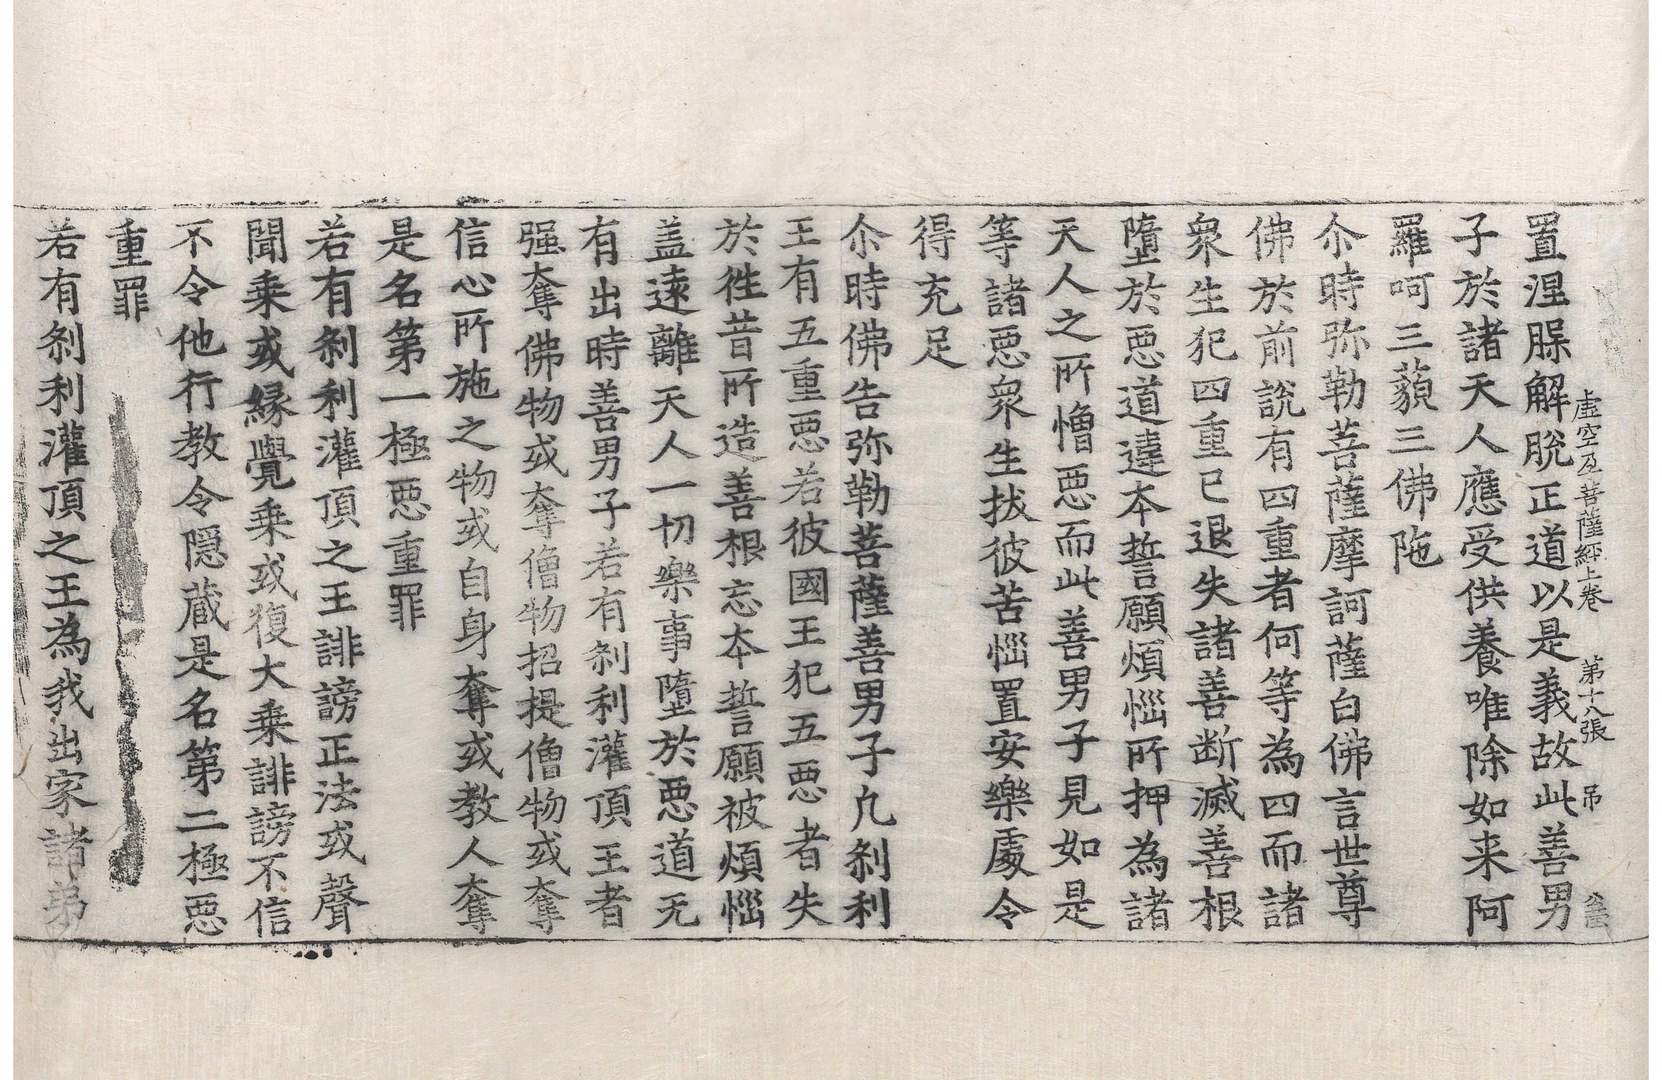 虛空孕菩薩經上卷 第十八張 吊
置涅槃解脫正道以是義故此善男
子於諸天人應受供養唯除如来阿
羅呵三藐三佛陁
尒時弥勒菩薩摩訶薩白佛言世尊
佛於前說有四重者何等為四而諸
衆生犯四重已退失諸善断滅善根
墮於惡道違本誓願煩惱所押為諸
天人之所憎惡而此善男子見如是
等諸惡衆生拔彼苦惱置安樂處令
得充足
尒時佛告弥勒菩薩善男子凢刹利
王有五重惡若彼國王犯五惡者失
於徃昔所造善根忘本誓願被煩惱
盖遠離天人一切樂事墮於惡道无
有出時善男子若有刹利灌頂王者
强奪佛物或奪僧物招提僧物或奪
信心所施之物或自身奪或教人奪
是名第一極惡重罪
若有刹利灌頂之王誹謗正法或聲
聞乘或緣覺乘或復大乘誹謗不信
不令他行教令隱蔵是名第二極惡
重罪
若有刹利灌頂之王為我出家諸弟